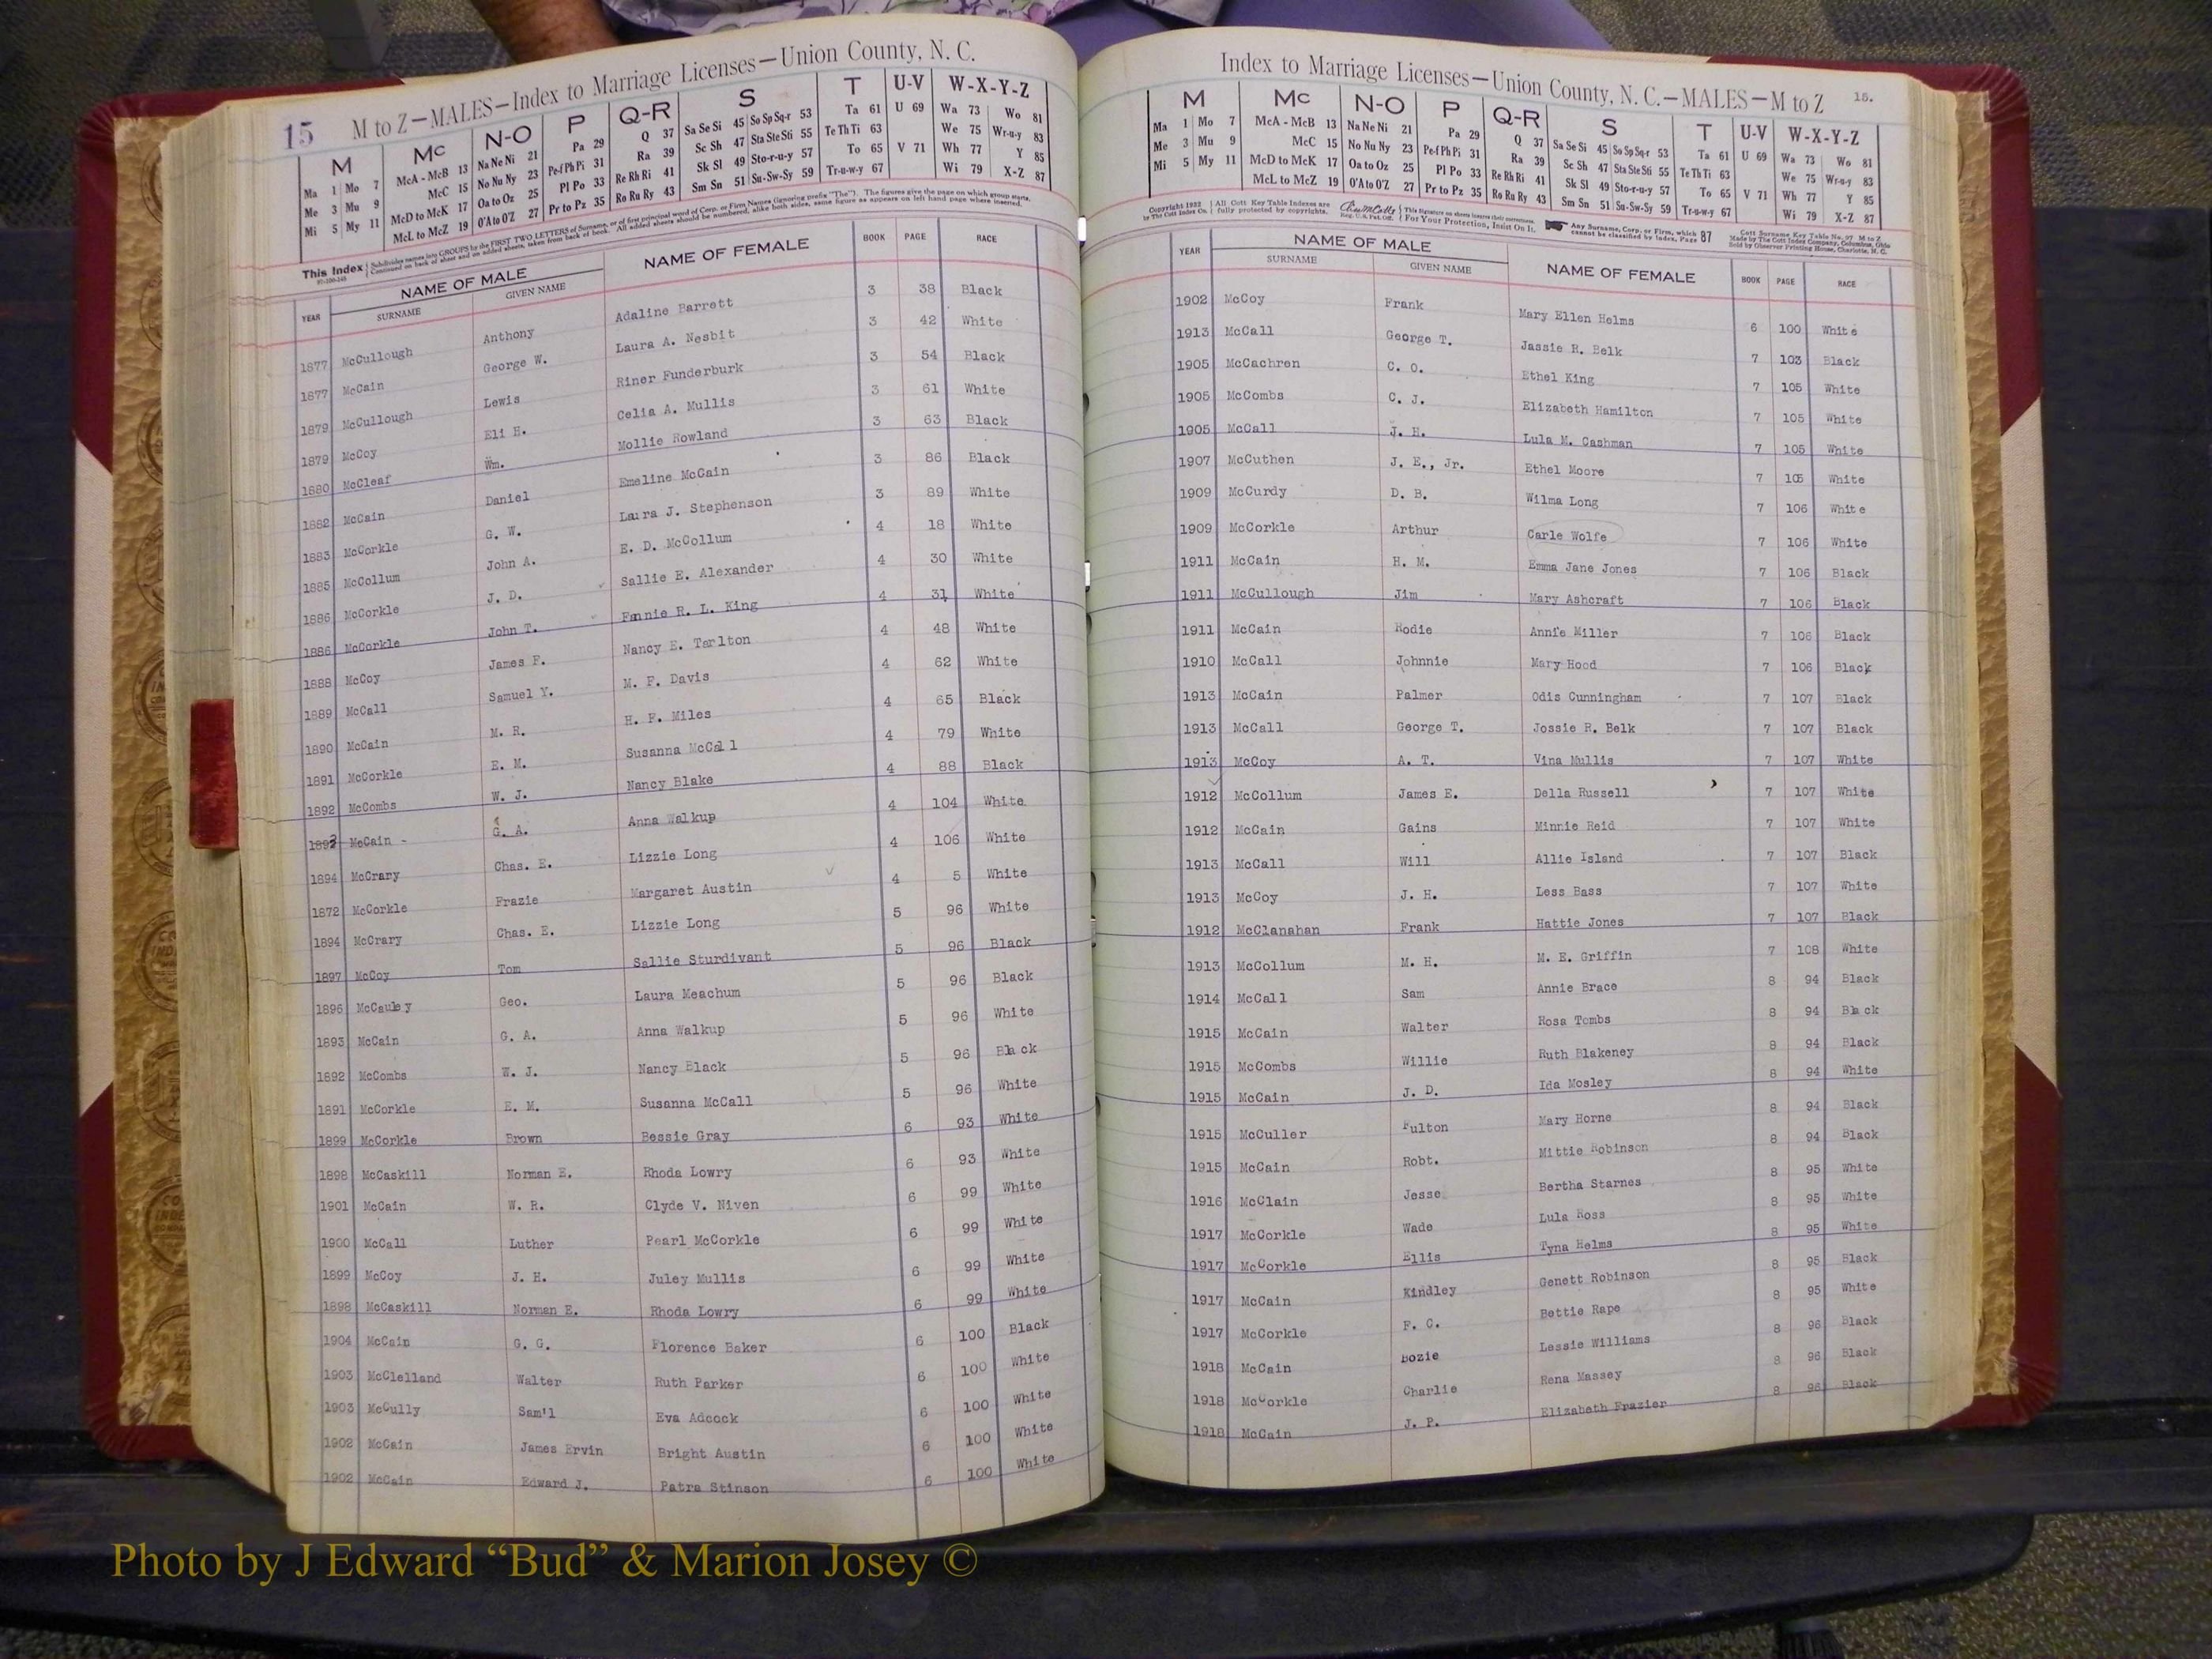 15 M to Z—MALES—Index to Marriage Licenses—Union County, N. C.
M Mc N-O P Q-R S T U-V W-X-Y-Z
Ma 1 Mo 7 McA - McB 13 Na Ne Ni 21 Pa 29 Q 37 Sa Se Si 45 So Sp Sq-r 53 Ta 61 U 69 Wa 73 Wo 81
Me 3 Mu 9 McC 15 No Nu Ny 23 Pe-f Ph Pi 31 Ra 39 Sc Sh 47 Sta Ste Sti 55 Te Th Ti 63 We 75 Wr-u-y 83
Mi 5 My 11 McD to McK 17 Oa to Oz 25 Pl Po 33 Re Rh Ri 41 Sk Sl 49 Sto-r-u-y 57 To 65 V 71 Wh 77 Y 85
McL to McZ 19 O'A to O'Z 27 Pr to Pz 35 Ro Ru Ry 43 Sm Sn 51 Su-Sw-Sy 59 Tr-u-w-y 67 Wi 79 X-Z 87
This Index
YEAR NAME OF MALE NAME OF FEMALE BOOK PAGE RACE
SURNAME GIVEN NAME
1877 McCullough Anthony Adaline Barrett 3 38 Black
1877 McCain George W. Laura A. Nesbit 3 42 White
1879 McCullough Lewis Riner Funderburk 3 54 Black
1879 McCoy Eli H. Celia A. Mullis 3 61 White
1880 McCleaf Wm. Mollie Rowland 3 63 Black
1882 McCain Daniel Emeline McCain 3 86 Black
1883 McCorkle G. W. Laura J. Stephenson 3 89 White
1885 McCollum John A. E. D. McCollum 4 18 White
1886 McCorkle J. D. Sallie E. Alexander 4 30 White
1886 McCorkle John T. Fannie R. L. King 4 31 White
1888 McCoy James F. Nancy E. Tarlton 4 48 White
1889 McCall Samuel Y. M. F. Davis 4 62 White
1890 McCain M. R. H. F. Miles 4 65 Black
1891 McCorkle E. M. Susanna McCall 4 79 White
1892 McCombs W. J. Nancy Blake 4 88 Black
1893 McCain - G. A. Anna Walkup 4 104 White
1894 McCrary Chas. E. Lizzie Long 4 106 White
1872 McCorkle Frazie Margaret Austin 4 5 White
1894 McCrary Chas. E. Lizzie Long 5 96 White
1897 McCoy Tom Sallie Sturdivant 5 96 Black
1896 McCauley Geo. Laura Meachum 5 96 Black
1893 McCain G. A. Anna Walkup 5 96 White
1892 McCombs W. J. Nancy Black 5 96 Black
1891 McCorkle E. M. Susanna McCall 5 96 White
1899 McCorkle Brown Bessie Gray 6 93 White
1898 McCaskill Norman E. Rhoda Lowry 6 93 White
1901 McCain W. R. Clyde V. Niven 6 99 White
1900 McCall Luther Pearl McCorkle 6 99 White
1899 McCoy J. H. Juley Mullis 6 99 White
1898 McCaskill Norman E. Rhoda Lowry 6 99 White
1904 McCain G. G. Florence Baker 6 100 Black
1903 McClelland Walter Ruth Parker 6 100 White
1903 McCully Sam'l Eva Adcock 6 100 White
1902 McCain James Ervin Bright Austin 6 100 White
1902 McCain Edward J. Patra Stinson 6 100 White
Index to Marriage Licenses—Union County, N. C.—MALES—M to Z 15.
M Mc N-O P Q-R S T U-V W-X-Y-Z
Ma 1 Mo 7 McA - McB 13 Na Ne Ni 21 Pa 29 Q 37 Sa Se Si 45 So Sp Sq-r 53 Ta 61 U 69 Wa 73 Wo 81
Me 3 Mu 9 McC 15 No Nu Ny 23 Pe-f Ph Pi 31 Ra 39 Sc Sh 47 Sta Ste Sti 55 Te Th Ti 63 We 75 Wr-u-y 83
Mi 5 My 11 McD to McK 17 Oa to Oz 25 Pl Po 33 Re Rh Ri 41 Sk Sl 49 Sto-r-u-y 57 To 65 V 71 Wh 77 Y 85
McL to McZ 19 O'A to O'Z 27 Pr to Pz 35 Ro Ru Ry 43 Sm Sn 51 Su-Sw-Sy 59 Tr-u-w-y 67 Wi 79 X-Z 87
YEAR NAME OF MALE NAME OF FEMALE BOOK PAGE RACE
SURNAME GIVEN NAME
1902 McCoy Frank Mary Ellen Helms 6 100 White
1913 McCall George T. Jassie R. Belk 7 103 Black
1905 McCachren C. O. Ethel King 7 105 White
1905 McCombs C. J. Elizabeth Hamilton 7 105 White
1905 McCall J. H. Lula M. Cashman 7 105 White
1907 McCuthen J. E., Jr. Ethel Moore 7 105 White
1909 McCurdy D. B. Wilma Long 7 106 White
1909 McCorkle Arthur Carle Wolfe 7 106 White
1911 McCain H. M. Emma Jane Jones 7 106 Black
1911 McCullough Jim Mary Ashcraft 7 106 Black
1911 McCain Hodie Annie Miller 7 106 Black
1910 McCall Johnnie Mary Hood 7 106 Black
1913 McCain Palmer Odis Cunningham 7 107 Black
1913 McCall George T. Jossie R. Belk 7 107 Black
1913 McCoy A. T. Vina Mullis 7 107 White
1912 McCollum James E. Della Russell 7 107 White
1912 McCain Gains Minnie Reid 7 107 White
1913 McCall Will Allie Island 7 107 Black
1913 McCoy J. H. Less Bass 7 107 White
1912 McClanahan Frank Hattie Jones 7 107 Black
1913 McCollum M. H. M. E. Griffin 7 108 White
1914 McCall Sam Annie Brace 8 94 Black
1915 McCain Walter Rosa Tombs 8 94 Black
1915 McCombs Willie Ruth Blakeney 8 94 Black
1915 McCain J. D. Ida Mosley 8 94 White
1915 McCuller Fulton Mary Horne 8 94 Black
1915 McCain Robt. Mittie Robinson 8 94 Black
1916 McClain Jesse Bertha Starnes 8 95 White
1917 McCorkle Wade Lula Ross 8 95 White
1917 McCorkle Ellis Tyna Helms 8 95 White
1917 McCain Kindley Genett Robinson 8 95 Black
1917 McCorkle F. C. Bettie Rape 8 95 White
1918 McCain Bozie Lessie Williams 8 96 Black
1918 McCorkle Charlie Rena Massey 8 96 Black
1918 McCain J. P. Elizabeth Frazier 8 96 Black
Photo by J Edward “Bud” & Marion Josey ©